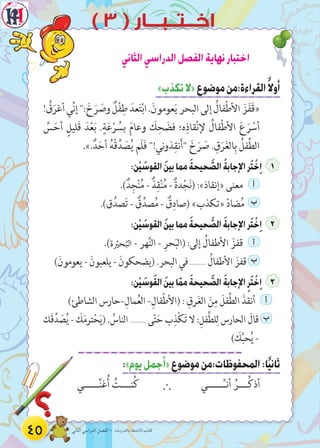 اختبار (٣)
اختبار نهاية الفصل الدراسي الثاني
أولًا القراءة: من موضوع «لا تكذب»
«قَفَزَ الأطْفالُ إلى البحرِ يعومونَ. ابْتَعَدَ طِفْلٌ وصَرَخَ: "إنِّي أَغْرَقُ!
أسْرَعَ الأطْفالُ لإنْقاذِهِ: فضَحِكَ وعامَ بِسُرْعَةٍ. بَعْدَ قَليلٍ أحَسَّ
الطِّفْلُ بِالغَرَقِ. صَرَخَ "أَنْقِذوني!" فَلَمْ يُصَدِّقْهُ أحَدٌ..».
١ اخْتَرِ الإجابةَ الصَّحيحةَ مما بينَ القَوْسَيْنِ:
أ معنى «إنقاذ»: (نَجْدَةٌ - مُنْقِذٌ - مُنْجِدٌ).
ب مُضادُّ «تكذب» (صادِقٌ - مُصدِّقٌ - تَصْدُق).
٢ اخْتَرِ الإجابةَ الصَّحيحةَ مما بينَ القَوْسَيْنِ:
أ قفزَ الأطفالُ إلى: (البَحرِ - النَّهر - البُحَيْرَة).
ب قفزَ الأطفالُ ........ في البحر. (يضحكونَ - يلعبونَ - يعومونَ)
٣ اخْتَرِ الإجابةَ الصَّحيحةَ ممّا بينَ القَوْسَيْنِ:
أ أنقذَ الطِّفْلَ مِنَ الغَرقِ : (الأطْفالُ- العمالُ-حارس الشاطئ)
ب قالَ الحارس للطِفْلِ: لا تَكْذِب حتّى ........ الناسُ. (يَحْتَرِمَكَ - يُصَدِّقَكَ
- يُحبَّكَ)
ثانيًا: المحفوظات:من موضوع «أجمل يوم»:
أذكُـرُ أنــي ∴ كُنـتُ أُغَنِّـي
كتاب الأنشطة والتدريبات - الفصل الدراسي الثاني
٤٥